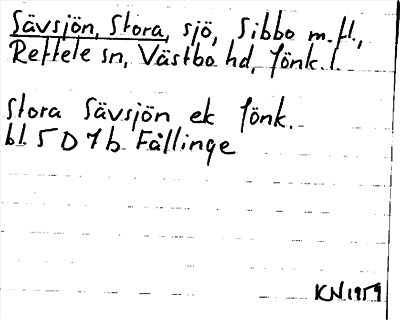 Sävsjön, Stora, sjö, Sibbo m.fl.,
Reftele sn, Västbo hd, Jönk. l.
Stora Sävsjön ek Jönk.
bl. 5 D 7 b Fållinge
KN. 1959